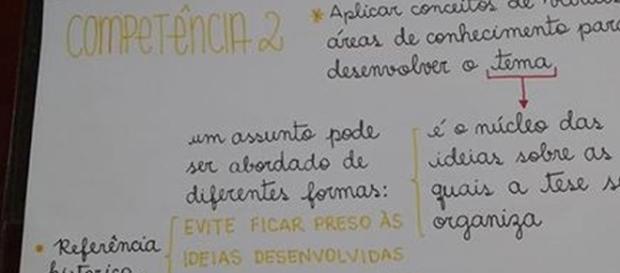 COMPETÊNCIA 2
* Aplicar conceitos de
áreas de conhecimento para
desenvolver o tema
um assunto pode
ser abordado de
diferentes formas:
é o núcleo das
ideias sobre as
quais a tese
organiza
EVITE FICAR PRESO ÀS
IDEIAS DESENVOLVIDAS
• Referência